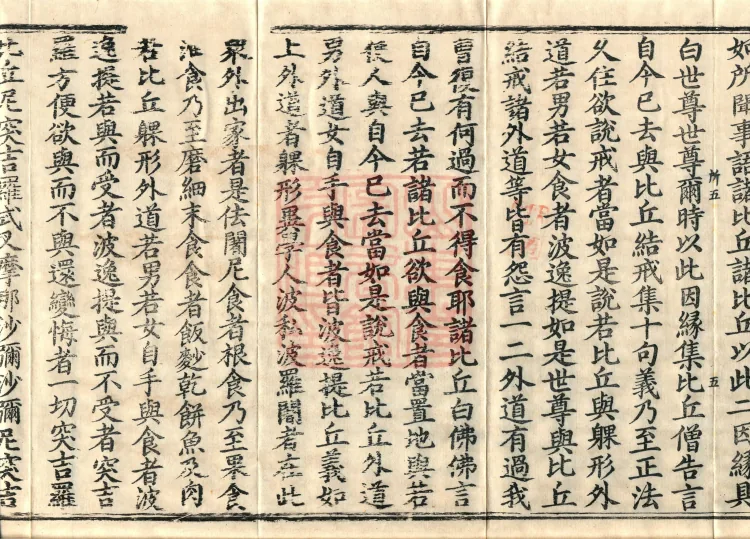 如所聞事語諸比丘諸比丘以此二因緣具
白世尊世尊爾時以此因緣集比丘僧告言
自今已去與比丘結戒集十句義乃至正法
久住欲說戒者當如是說若比丘與躶形外
道若男若女食者波逸提如是世尊與比丘
結戒諸外道等皆有怨言一二外道有過我
曹復有何過而不得食耶諸比丘白佛佛言
自今已去若諸比丘欲與食者當置地與若
使人與自今已去當如是說戒若比丘外道
男外道女自手與食者皆波逸提比丘義如
上外道者躶形異字人波私波羅闍者在此
衆外出家者是佉闍尼食者根食乃至果食
油食乃至磨細末食食者飯麨乾餅魚及肉
若比丘躶形外道若男若女自手與食者波
逸提若與而受者波逸提與而不受者突吉
羅方便欲與而不與還變悔者一切突吉羅
比丘尼突吉羅式叉摩那沙彌沙彌尼突吉